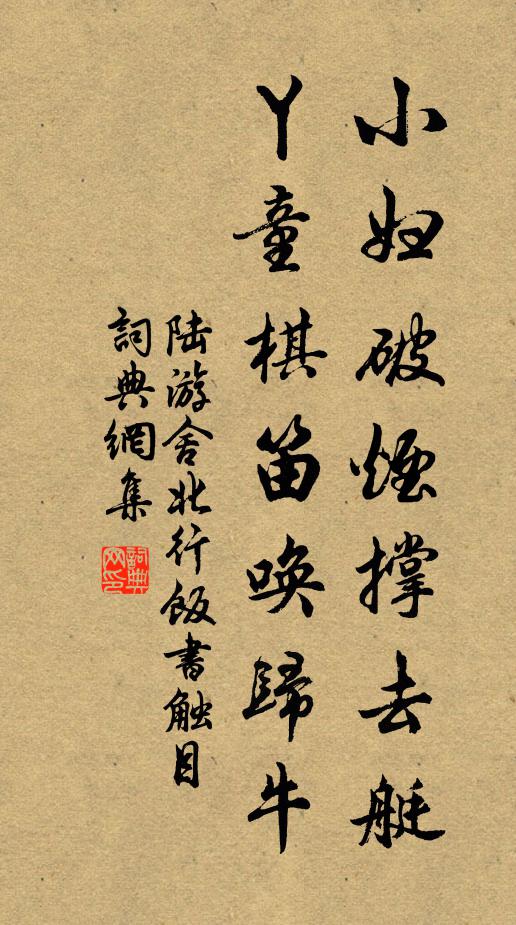 小妇破煙撑去艇
丫童棋笛唤歸牛
陆游舍北行飯書触目
詞典網集
詞典网印